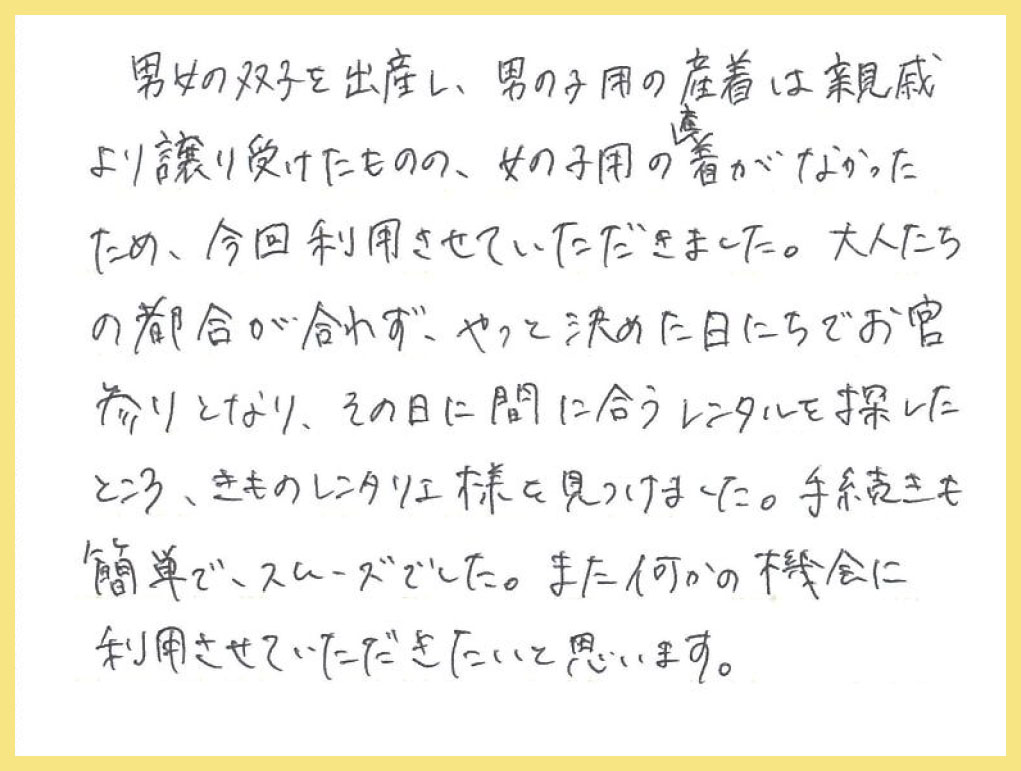 男女の双子を出産し、男の子用の産着は親戚
より譲り受けたものの、女の子用の産着がなかった
ため、今回利用させていただきました。大人たち
の都合が合わず、やっと決めた日にちでお宮
参りとなり、その日に間に合うレンタルを探した
ところ、きものレンタリエ様を見つけました。手続きも
簡単で、スムーズでした。また何かの機会に
利用させていただきたいと思います。